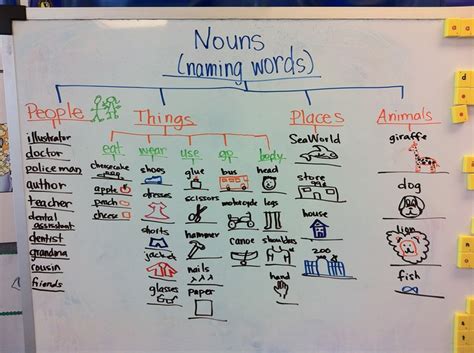 Nouns
(naming words)
People
illustrator
doctor
policeman
author
teacher
dental
assistant
dentist
grandma
cousin
friends
Things
eat
cheesecake
apple
peach
cheese
wear
shoes
dresses
shorts
jackets
glasses
use
glue
scissors
hammer
nails
paper
go
bus
motorcycle
canoe
body
head
legs
shoulders
hand
Places
SeaWorld
store
house
zoo
Animals
giraffe
dog
lion
fish